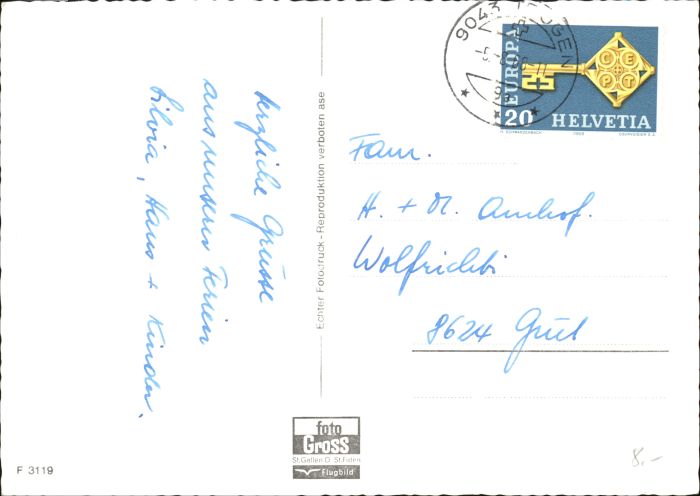 herzliche Grüsse
aus unseren Ferien
Silvia, Hans + Kinder.
Echter Fotodruck - Reproduktion verboten ase
9043 TROGEN
EUROPA
CEPT
20 HELVETIA
H. SCHWARZENBACH 1968 COURVOISIER S.A.
Fam.
H. + M. Amhof.
Wolfrichti
8624 Grüt
foto
Gross
St.Gallen O St.Fiden
Flugbild
F 3119
8.-